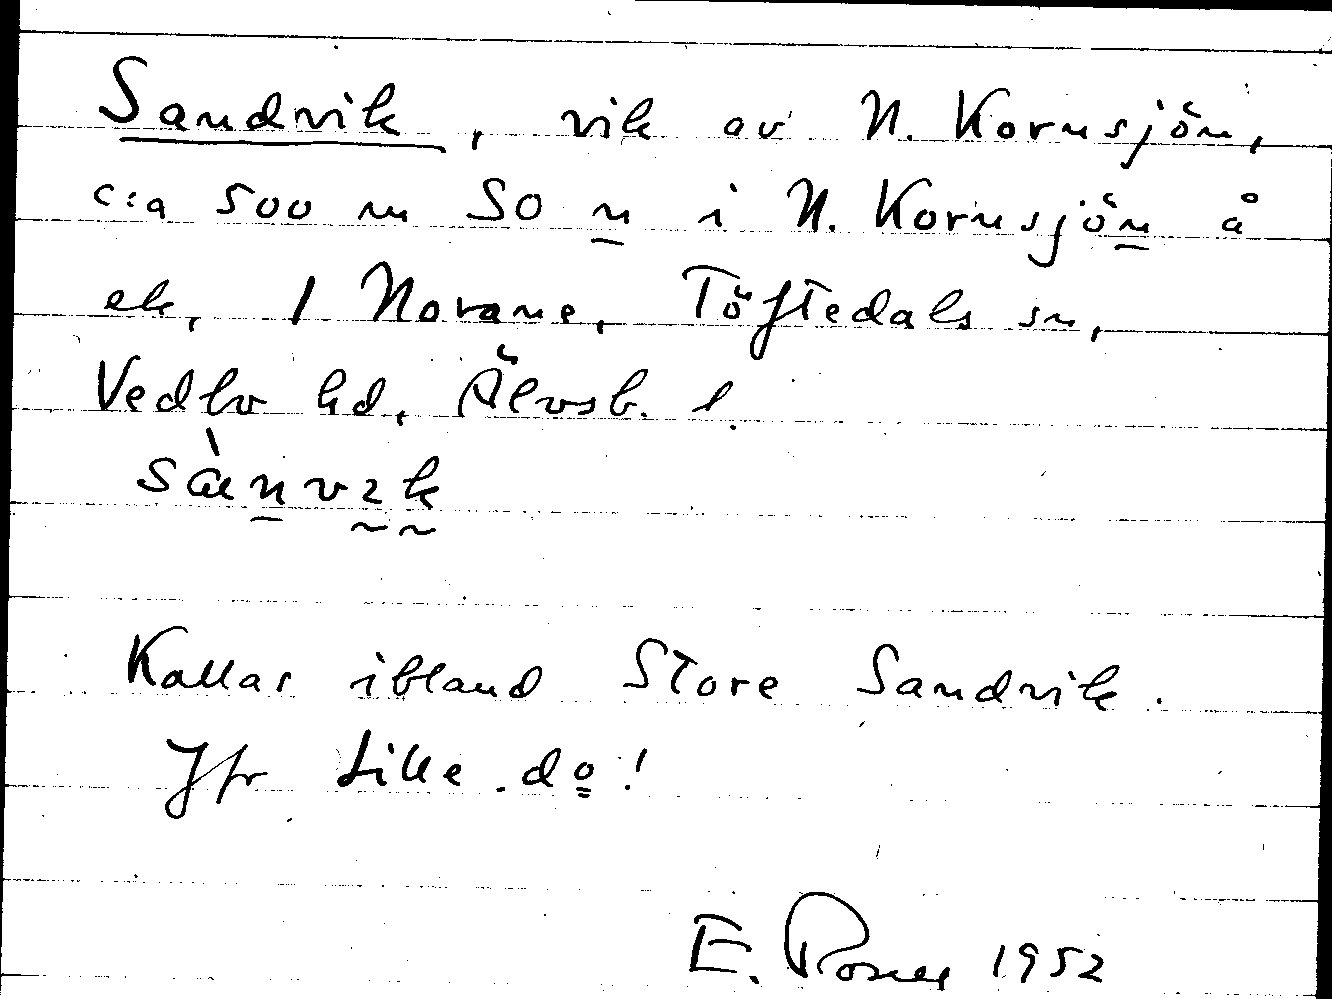 Sandvik, vik av N. Kornsjön,
c:a 500 m SO n i N. Kornsjön å
ek, 1 Norane, Töftedals sn,
Vedbo hd, Älvsb. l.
Kallas ibland Store Sandvik.
Jfr Lille do!
E. 1952